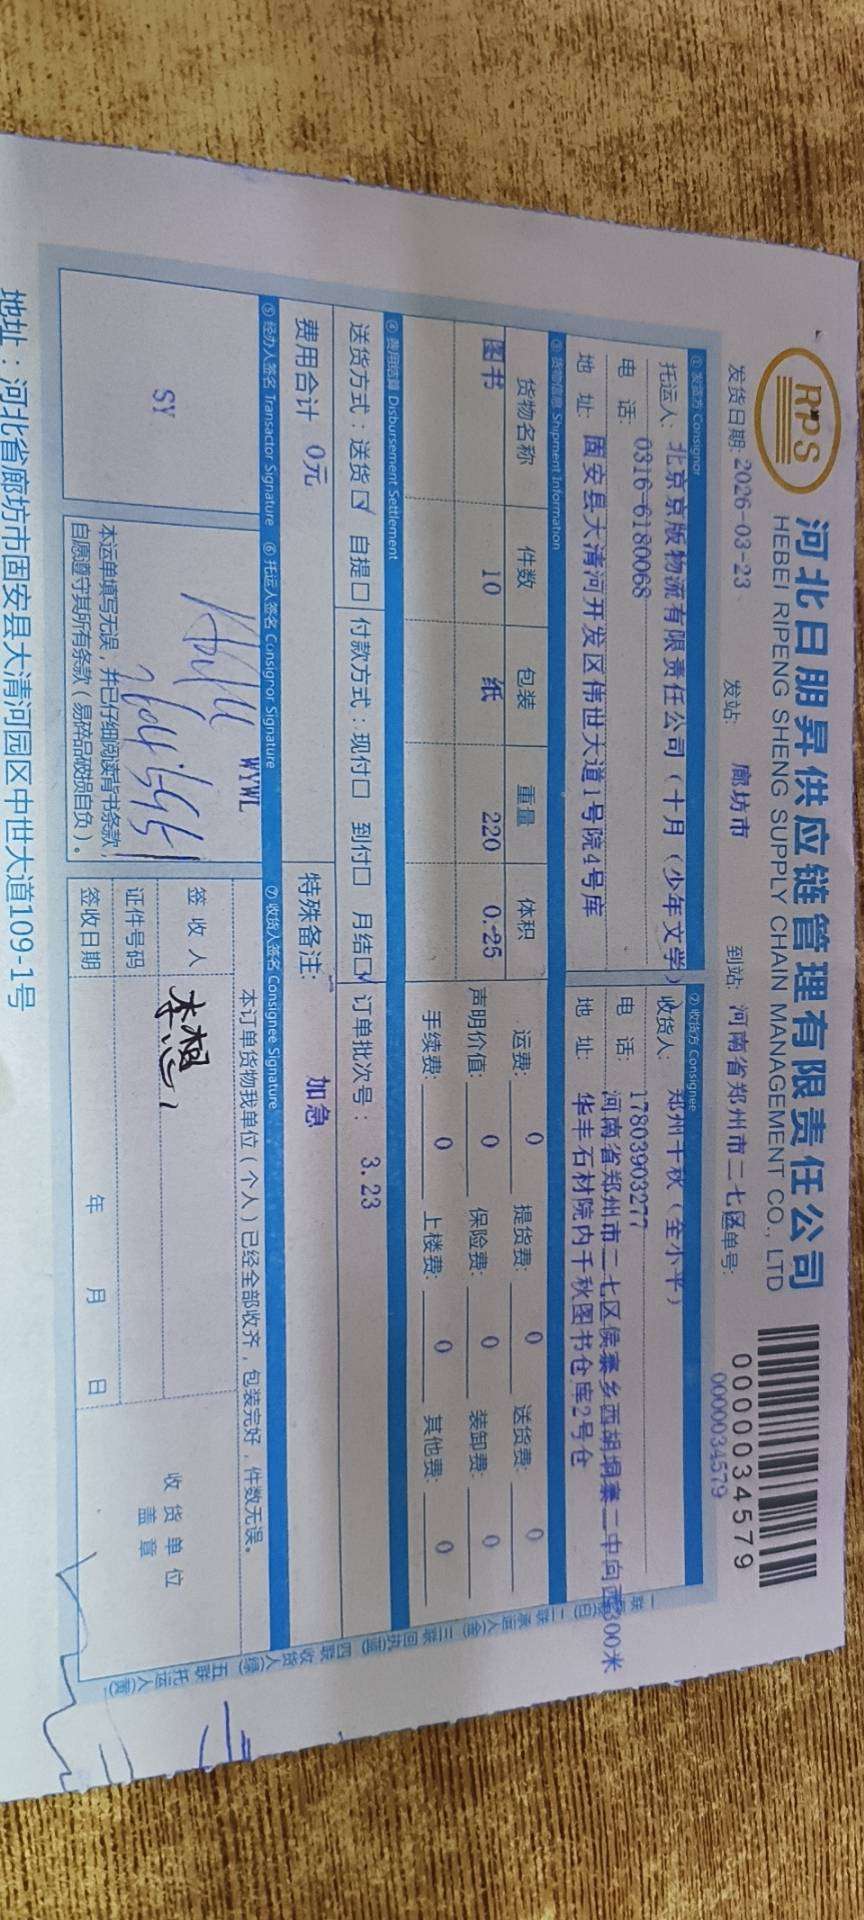 RPS
河北日朋昇供应链管理有限责任公司
HEBEI RIPENG SHENG SUPPLY CHAIN MANAGEMENT CO., LTD
0000034579
0000034579
发货日期: 2026-03-23 发站: 廊坊市 到站: 河南省郑州市二七区 单号:
① 发货方 Consignor
托运人: 北京京版物流有限责任公司(十月(少年文学)
电 话: 0316-6180068
地 址: 固安县大清河开发区伟世大道1号院4号库
② 收货方 Consignee
收货人: 郑州千秋(全小平)
电 话: 17803903277
地 址: 河南省郑州市二七区侯寨乡西胡垌寨二中向西300米
华丰石材院内千秋图书仓库2号仓
③ 货物信息 Shipment Information
货物名称 件数 包装 重量 体积
图书 10 纸 220 0.25
运费: 0 提货费: 0 送货费: 0
声明价值: 0 保险费: 0 装卸费: 0
手续费: 0 上楼费: 0 其他费: 0
④ 费用结算 Disbursement Settlement
送货方式:送货☑ 自提□ 付款方式:现付□ 到付□ 月结☑ 订单批次号: 3.23
费用合计 0元 特殊备注: 加急
⑤ 经办人签名 Transactor Signature ⑥ 托运人签名 Consignor Signature ⑦ 收货人签名 Consignee Signature
SY
WYWL
本运单填写无误,并已仔细阅读背书条款,
自愿遵守其所有条款(易碎品破损自负)。
本订单货物我单位(个人)已经全部收齐,包装完好,件数无误。
签 收 人
证件号码
签收日期 年 月 日
收货单位
盖 章
地址:河北省廊坊市固安县大清河园区中世大道109-1号